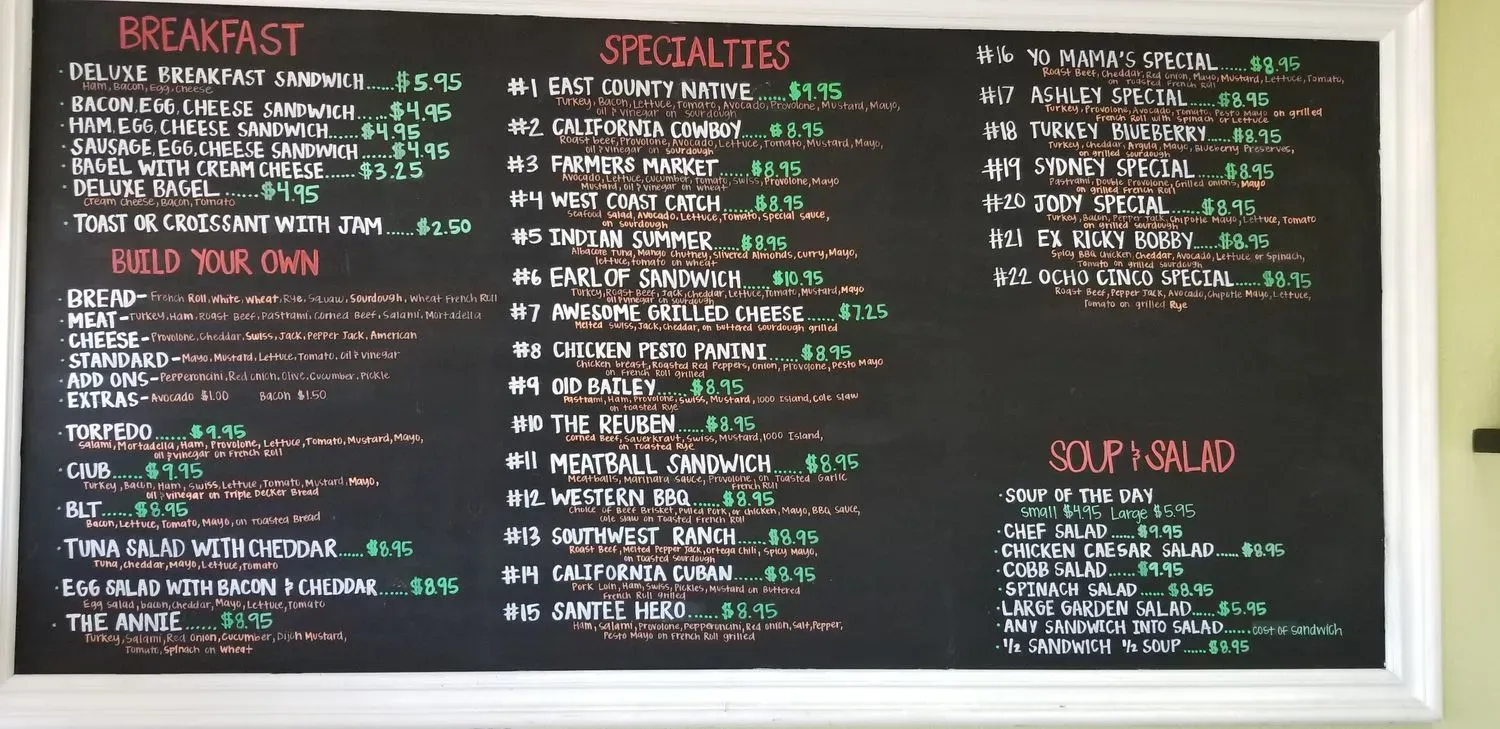 BREAKFAST
· DELUXE BREAKFAST SANDWICH......$5.95
Ham, Bacon, Egg, Cheese
· BACON, EGG, CHEESE SANDWICH......$4.95
· HAM, EGG, CHEESE SANDWICH......$4.95
· SAUSAGE, EGG, CHEESE SANDWICH......$4.95
· BAGEL WITH CREAM CHEESE......$3.25
· DELUXE BAGEL......$4.95
Cream Cheese, Bacon, Tomato
· TOAST OR CROISSANT WITH JAM......$2.50
BUILD YOUR OWN
· BREAD- French Roll, White, Wheat, Rye, Squaw, Sourdough, Wheat French Roll
· MEAT- Turkey, Ham, Roast Beef, Pastrami, Corned Beef, Salami, Mortadella
· CHEESE- Provolone, Cheddar, Swiss, Jack, Pepper Jack, American
· STANDARD- Mayo, Mustard, Lettuce, Tomato, Oil & Vinegar
· ADD ONS- Pepperoncini, Red Onion, Olive, Cucumber, Pickle
· EXTRAS- Avocado $1.00 Bacon $1.50
· TORPEDO......$9.95
Salami, Mortadella, Ham, Provolone, Lettuce, Tomato, Mustard, Mayo,
oil & vinegar on French Roll
· CLUB......$9.95
Turkey, Bacon, Ham, Swiss, Lettuce, Tomato, Mustard, Mayo,
oil & vinegar on Triple Decker Bread
· BLT......$8.95
Bacon, Lettuce, Tomato, Mayo, on Toasted Bread
· TUNA SALAD WITH CHEDDAR......$8.95
Tuna, cheddar, Mayo, Lettuce, Tomato
· EGG SALAD WITH BACON & CHEDDAR......$8.95
Egg Salad, bacon, Cheddar, Mayo, Lettuce, Tomato
· THE ANNIE......$8.95
Turkey, Salami, Red Onion, Cucumber, Dijon Mustard,
Tomato, Spinach on Wheat
SPECIALTIES
#1 EAST COUNTY NATIVE......$9.95
Turkey, Bacon, Lettuce, Tomato, Avocado, Provolone, Mustard, Mayo,
oil & vinegar on sourdough
#2 CALIFORNIA COWBOY......$8.95
Roast beef, Provolone, Avocado, Lettuce, Tomato, Mustard, Mayo,
oil & vinegar on sourdough
#3 FARMERS MARKET......$8.95
Avocado, Lettuce, Cucumber, Tomato, Swiss, Provolone, Mayo
Mustard, oil & vinegar on wheat
#4 WEST COAST CATCH......$8.95
Seafood Salad, Avocado, Lettuce, Tomato, Special Sauce,
on sourdough
#5 INDIAN SUMMER......$8.95
Albacore Tuna, Mango Chutney, Slivered Almonds, Curry, Mayo,
lettuce, tomato on wheat
#6 EARL OF SANDWICH......$10.95
Turkey, Roast Beef, Jack, Cheddar, Lettuce, Tomato, Mustard, Mayo
oil & vinegar on sourdough
#7 AWESOME GRILLED CHEESE......$7.25
Melted Swiss, Jack, Cheddar, on buttered sourdough grilled
#8 CHICKEN PESTO PANINI......$8.95
Chicken breast, Roasted Red Peppers, Onion, Provolone, Pesto Mayo
on French Roll grilled
#9 OLD BAILEY......$8.95
Pastrami, Ham, Provolone, Swiss, Mustard, 1000 Island, Cole Slaw
on Toasted Rye
#10 THE REUBEN......$8.95
Corned Beef, Sauerkraut, Swiss, Mustard, 1000 Island,
on Toasted Rye
#11 MEATBALL SANDWICH......$8.95
Meatballs, Marinara Sauce, Provolone, on Toasted Garlic
French Roll
#12 WESTERN BBQ......$8.95
Choice of Beef Brisket, Pulled Pork, or Chicken, Mayo, BBQ Sauce,
Cole Slaw on Toasted French Roll
#13 SOUTHWEST RANCH......$8.95
Roast Beef, Melted Pepper Jack, Ortega Chili, Spicy Mayo,
on Toasted Sourdough
#14 CALIFORNIA CUBAN......$8.95
Pork Loin, Ham, Swiss, Pickles, Mustard on Buttered
French Roll Grilled
#15 SANTEE HERO......$8.95
Ham, Salami, Provolone, Pepperoncini, Red onion, Salt, Pepper,
Pesto Mayo on French Roll grilled
#16 YO MAMA'S SPECIAL......$8.95
Roast Beef, Cheddar, Red Onion, Mayo, Mustard, Lettuce, Tomato,
on Toasted French Roll
#17 ASHLEY SPECIAL......$8.95
Turkey, Provolone, Avocado, Tomato, Pesto Mayo on grilled
French Roll with Spinach or Lettuce
#18 TURKEY BLUEBERRY......$8.95
Turkey, Cheddar, Argula, Mayo, Blueberry Preserves,
on grilled sourdough
#19 SYDNEY SPECIAL......$8.95
Pastrami, Double Provolone, Grilled Onions, Mayo
on grilled French Roll
#20 JODY SPECIAL......$8.95
Turkey, Bacon, Pepper Jack, Chipotle Mayo, Lettuce, Tomato
on grilled sourdough
#21 EX RICKY BOBBY......$8.95
Spicy BBQ Chicken, Cheddar, Avocado, Lettuce or Spinach,
Tomato on grilled sourdough
#22 OCHO CINCO SPECIAL......$8.95
Roast Beef, Pepper Jack, Avocado, Chipotle Mayo, Lettuce,
Tomato on grilled Rye
SOUP & SALAD
· SOUP OF THE DAY
Small $4.95 Large $5.95
· CHEF SALAD......$9.95
· CHICKEN CAESAR SALAD......$8.95
· COBB SALAD......$9.95
· SPINACH SALAD......$8.95
· LARGE GARDEN SALAD......$5.95
· ANY SANDWICH INTO SALAD......cost of sandwich
· 1/2 SANDWICH 1/2 SOUP......$8.95